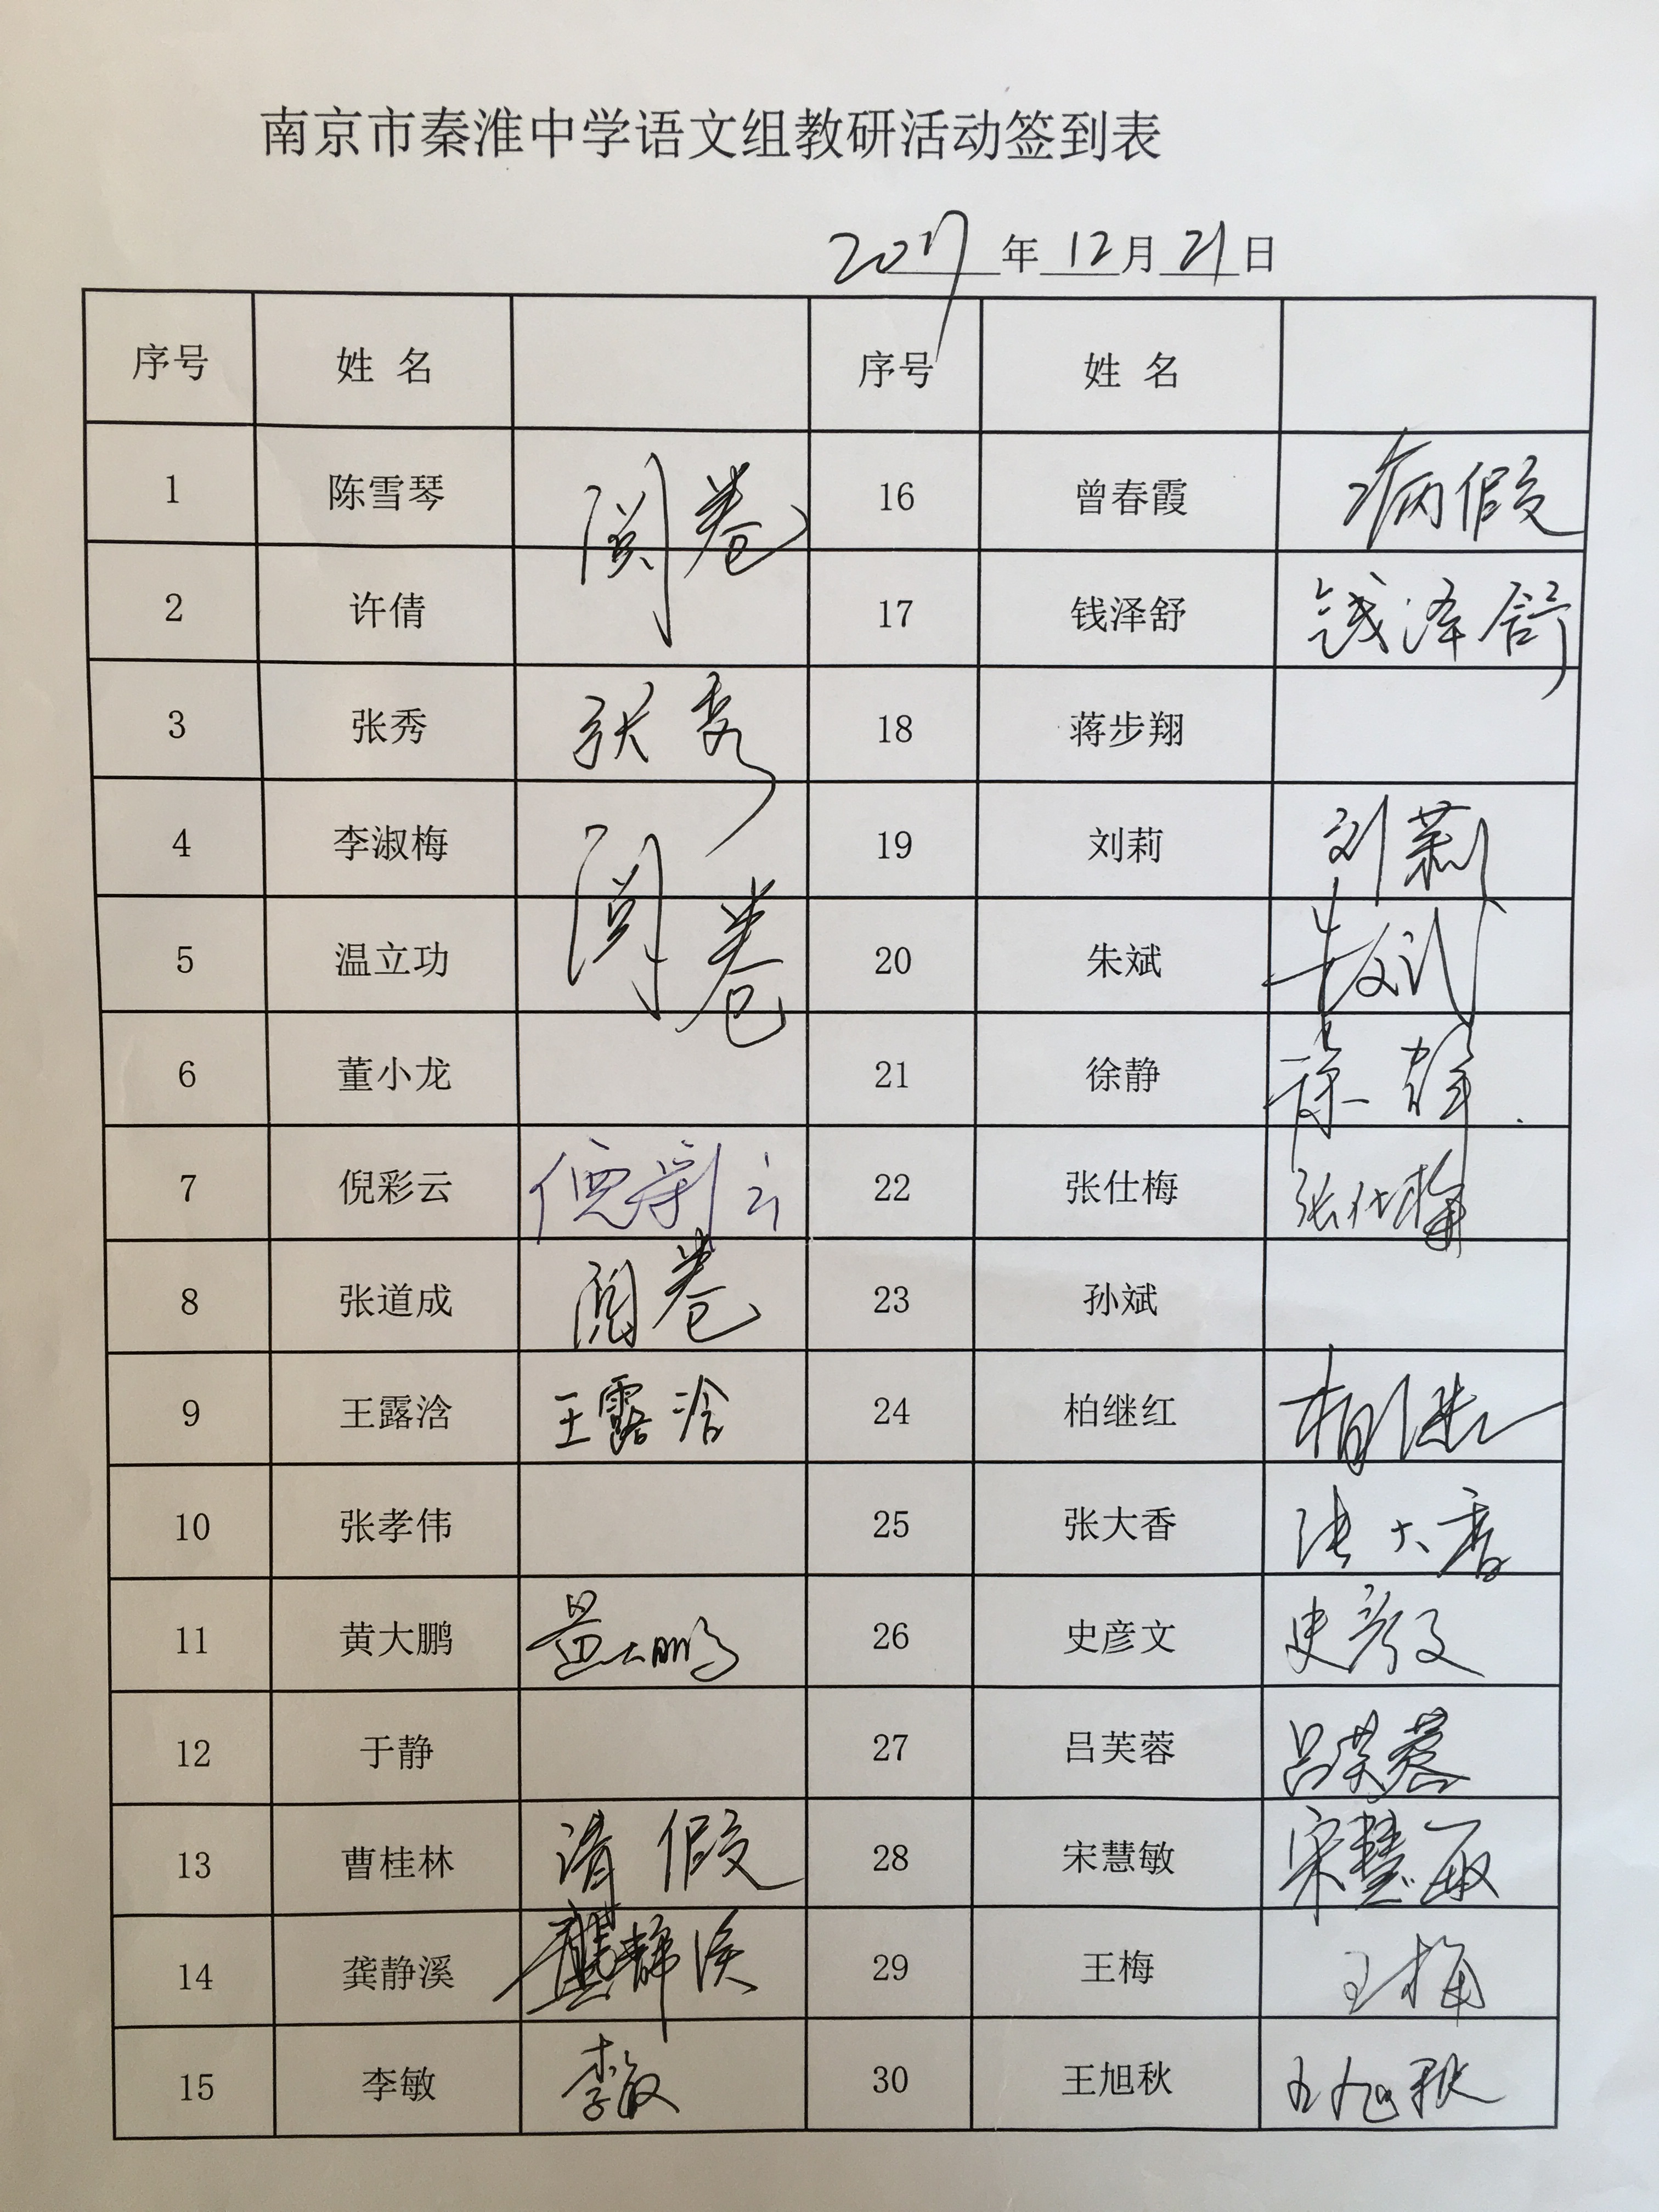 南京市秦淮中学语文组教研活动签到表
2017年12月21日
序号 姓名 序号 姓名
1 陈雪琴 阅卷 16 曾春霞 病假
2 许倩 17 钱泽舒 钱泽舒
3 张秀 张秀 18 蒋步翔
4 李淑梅 阅卷 19 刘莉 刘莉
5 温立功 20 朱斌 朱斌
6 董小龙 21 徐静 徐静
7 倪彩云 倪彩云 22 张仕梅 张仕梅
8 张道成 阅卷 23 孙斌
9 王露浛 王露浛 24 柏继红 柏继红
10 张孝伟 25 张大香 张大香
11 黄大鹏 黄大鹏 26 史彦文 史彦文
12 于静 27 吕芙蓉 吕芙蓉
13 曹桂林 请假 28 宋慧敏 宋慧敏
14 龚静溪 龚静溪 29 王梅 王梅
15 李敏 李敏 30 王旭秋 王旭秋